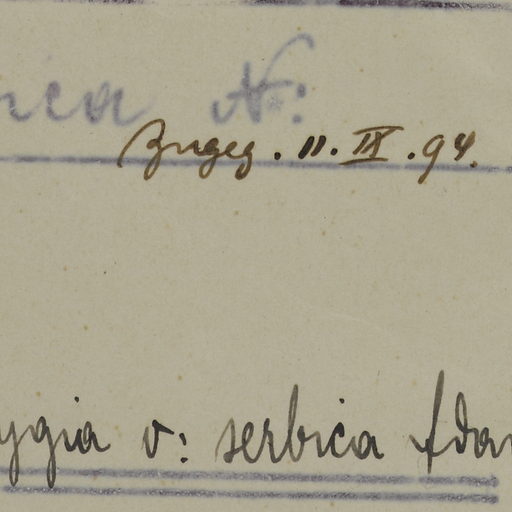 ica N:
Zugeg. 11. IX. 94.
ygia v: serbica Adam